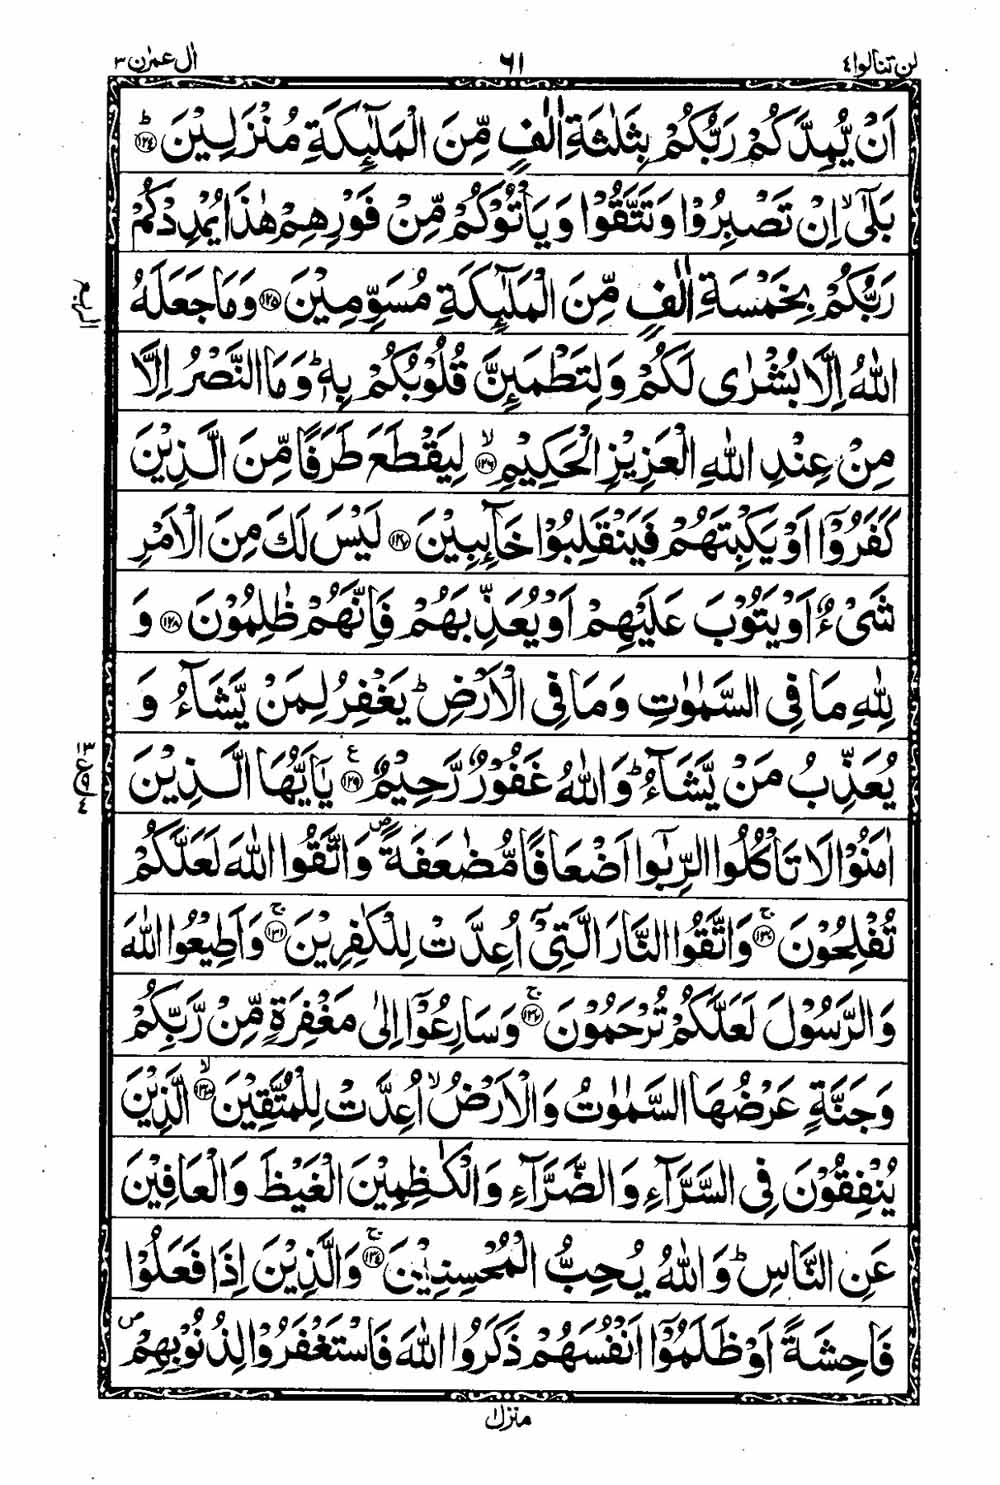 لن تنالوا ٤ ٦١ اٰل عمرٰن ٣
اَنْ يُّمِدَّكُمْ رَبُّكُمْ بِثَلٰثَةِ اٰلٰفٍ مِّنَ الْمَلٰٓئِكَةِ مُنْزَلِيْنَ ؕ﴿۱۲۴﴾
بَلٰٓى ۙ اِنْ تَصْبِرُوْا وَتَتَّقُوْا وَيَاْتُوْكُمْ مِّنْ فَوْرِهِمْ هٰذَا يُمْدِدْكُمْ
رَبُّكُمْ بِخَمْسَةِ اٰلٰفٍ مِّنَ الْمَلٰٓئِكَةِ مُسَوِّمِيْنَ ﴿۱۲۵﴾ وَمَا جَعَلَهُ
الربع
اللّٰهُ اِلَّا بُشْرٰى لَكُمْ وَلِتَطْمَئِنَّ قُلُوْبُكُمْ بِهٖ ؕ وَمَا النَّصْرُ اِلَّا
مِنْ عِنْدِ اللّٰهِ الْعَزِيْزِ الْحَكِيْمِ ۙ﴿۱۲۶﴾ لِيَقْطَعَ طَرَفًا مِّنَ الَّذِيْنَ
كَفَرُوْٓا اَوْ يَكْبِتَهُمْ فَيَنْقَلِبُوْا خَآئِبِيْنَ ﴿۱۲۷﴾ لَيْسَ لَكَ مِنَ الْاَمْرِ
شَىْءٌ اَوْ يَتُوْبَ عَلَيْهِمْ اَوْ يُعَذِّبَهُمْ فَاِنَّهُمْ ظٰلِمُوْنَ ﴿۱۲۸﴾ وَ
لِلّٰهِ مَا فِى السَّمٰوٰتِ وَمَا فِى الْاَرْضِ ؕ يَغْفِرُ لِمَنْ يَّشَآءُ وَ
يُعَذِّبُ مَنْ يَّشَآءُ ؕ وَاللّٰهُ غَفُوْرٌ رَّحِيْمٌ ﴿۱۲۹﴾ ع يٰٓاَيُّهَا الَّذِيْنَ
اٰمَنُوْا لَا تَاْكُلُوا الرِّبٰٓوا اَضْعَافًا مُّضٰعَفَةً ص وَاتَّقُوا اللّٰهَ لَعَلَّكُمْ
تُفْلِحُوْنَ ۚ﴿۱۳۰﴾ وَاتَّقُوا النَّارَ الَّتِىْٓ اُعِدَّتْ لِلْكٰفِرِيْنَ ۚ﴿۱۳۱﴾ وَاَطِيْعُوا اللّٰهَ
وَالرَّسُوْلَ لَعَلَّكُمْ تُرْحَمُوْنَ ۚ﴿۱۳۲﴾ وَسَارِعُوْٓا اِلٰى مَغْفِرَةٍ مِّنْ رَّبِّكُمْ
وَجَنَّةٍ عَرْضُهَا السَّمٰوٰتُ وَالْاَرْضُ ۙ اُعِدَّتْ لِلْمُتَّقِيْنَ ۙ﴿۱۳۳﴾ الَّذِيْنَ
يُنْفِقُوْنَ فِى السَّرَّآءِ وَالضَّرَّآءِ وَالْكٰظِمِيْنَ الْغَيْظَ وَالْعَافِيْنَ
عَنِ النَّاسِ ؕ وَاللّٰهُ يُحِبُّ الْمُحْسِنِيْنَ ۚ﴿۱۳۴﴾ وَالَّذِيْنَ اِذَا فَعَلُوْا
فَاحِشَةً اَوْ ظَلَمُوْٓا اَنْفُسَهُمْ ذَكَرُوا اللّٰهَ فَاسْتَغْفَرُوْا لِذُنُوْبِهِمْ ص
منزل ۱